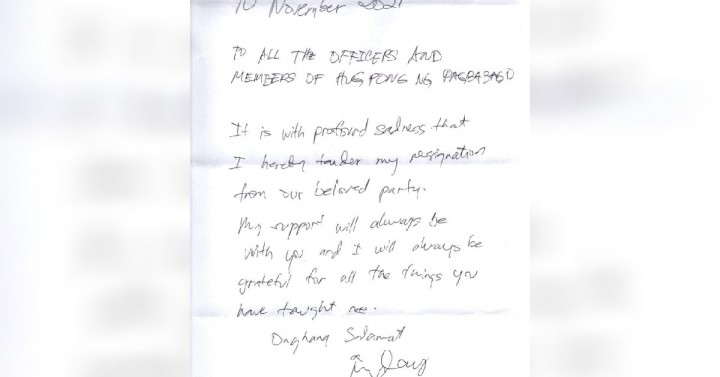 10 November 2021
TO ALL THE OFFICERS AND
MEMBERS OF HUGPONG NG PAGBABAGO
It is with profound sadness that
I hereby tender my resignation
from our beloved party.
My support will always be
with you and I will always be
grateful for all the things you
have taught me.
Daghang Salamat